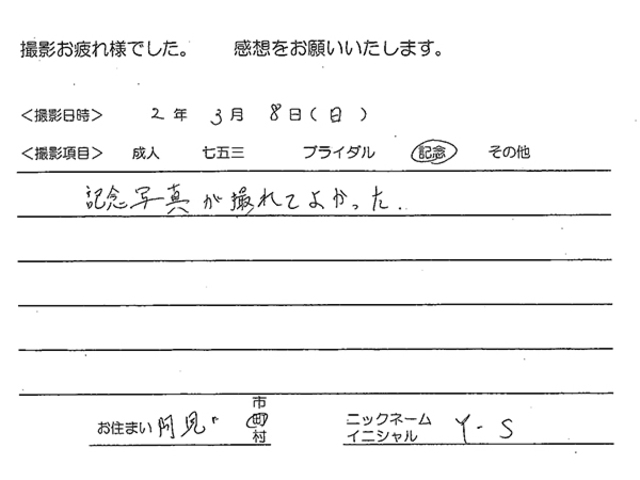 撮影お疲れ様でした。 感想をお願いいたします。
<撮影日時> 2年 3月 8日(日)
<撮影項目> 成人 七五三 ブライダル 記念 その他
記念写真が撮れてよかった.
お住まい 阿見 市 町 村 ニックネーム イニシャル Y.S